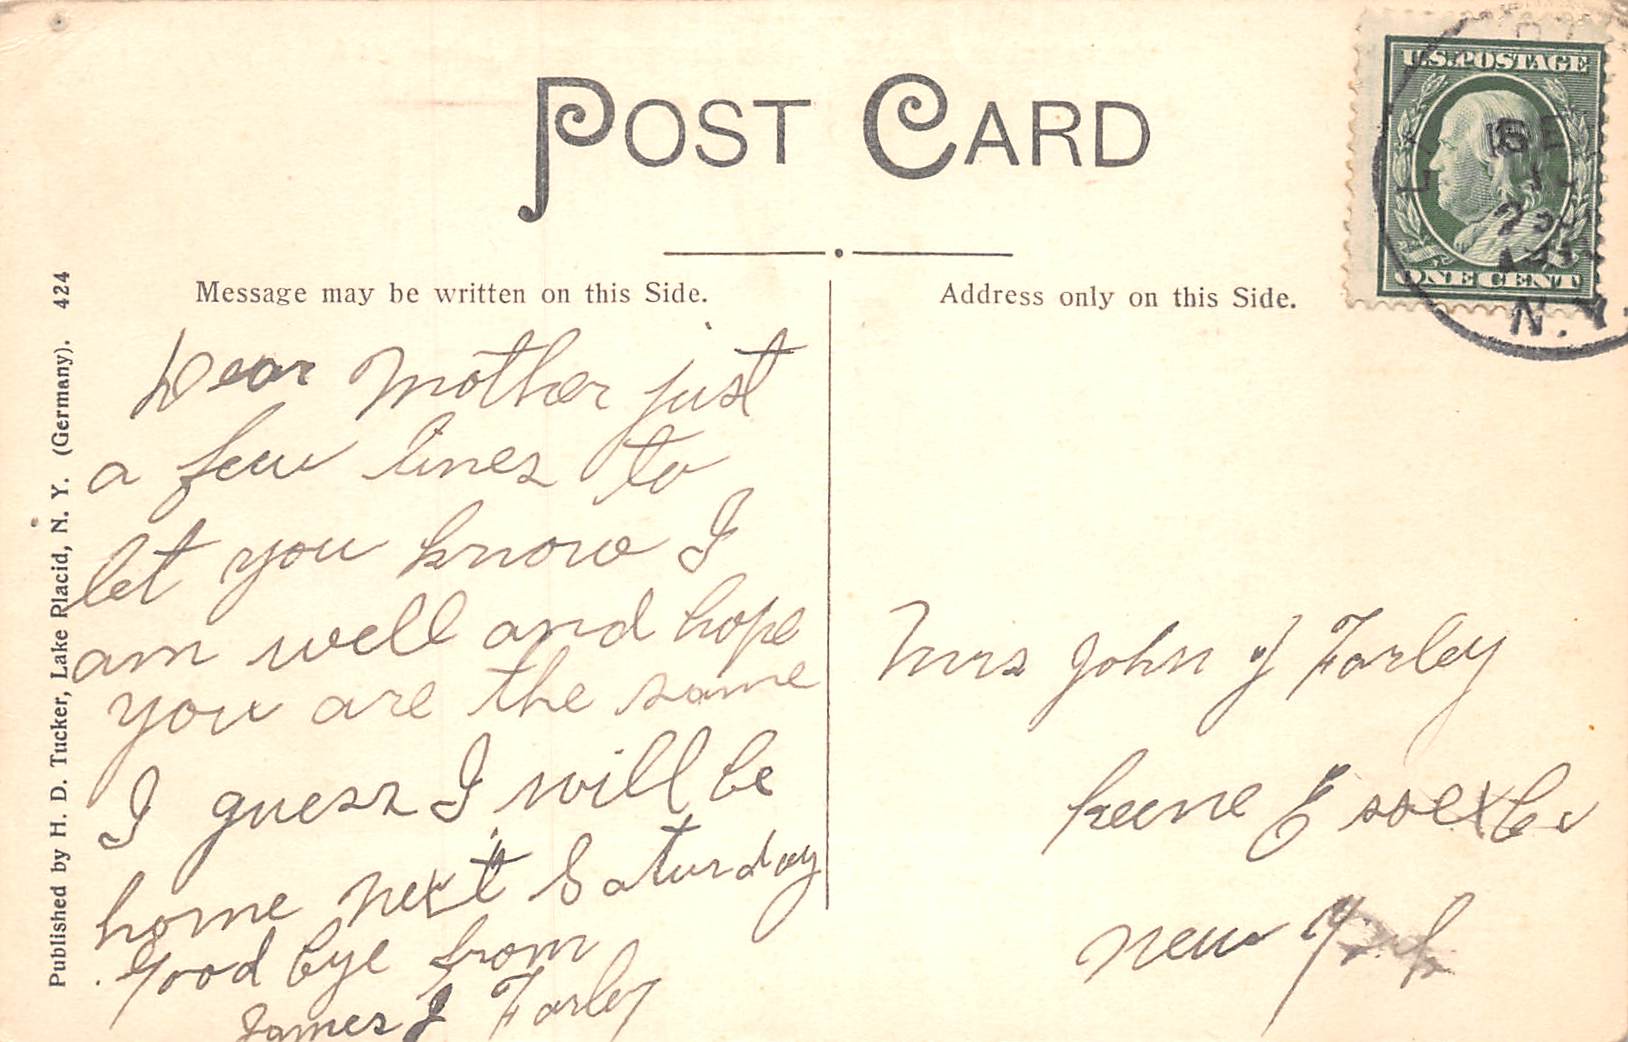 POST CARD
Message may be written on this Side.
Address only on this Side.
U.S. POSTAGE
ONE CENT
N.Y.
Published by H. D. Tucker, Lake Placid, N. Y. (Germany). 424
Dear Mother just
a few lines to
let you know I
am well and hope
you are the same
I guess I will be
home next Saturday
Good bye from
James J Farley
Mrs John J Farley
Keene Essex Co
New York